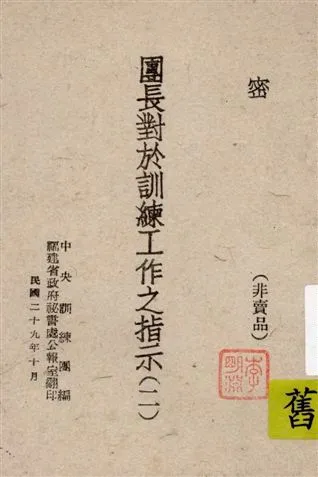 密
(非賣品)
團長對於訓練工作之指示(二)
中央訓練團編
福建省政府祕書處公報室翻印
民國二十九年十月
舊